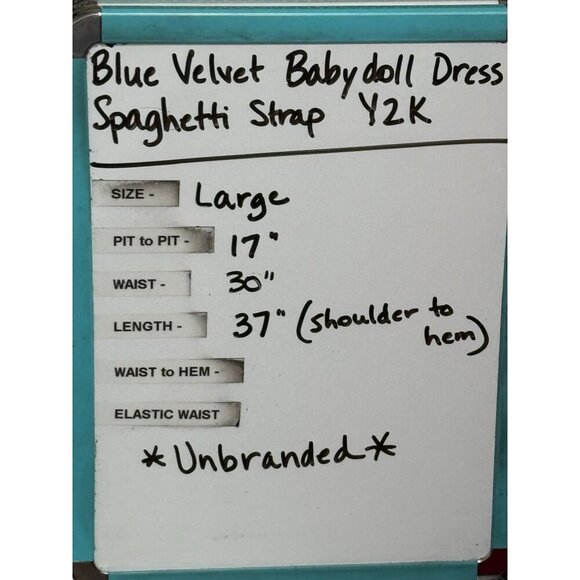 Blue Velvet Babydoll Dress
Spaghetti Strap Y2K
SIZE - Large
PIT to PIT - 17"
WAIST - 30"
LENGTH - 37" (shoulder to hem)
WAIST to HEM -
ELASTIC WAIST
*Unbranded*